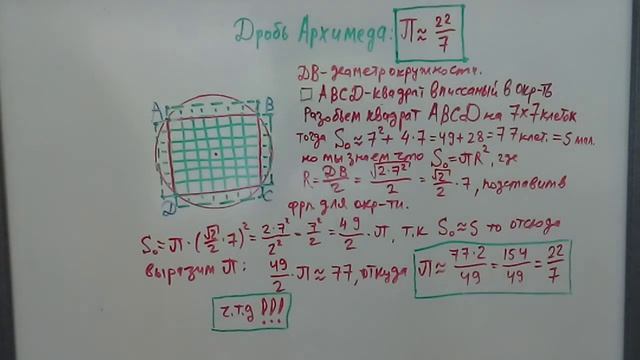 Дробь Архимеда: П ≈ 22/7
DB - диаметр окружности.
□ ABCD - квадрат вписаный в окр-ть
Разобьем квадрат ABCD на 7x7 клеток
тогда S₀ ≈ 7² + 4·7 = 49 + 28 = 77 клет. = S мал.
но мы знаем что S₀ = πR², где
R = DB/2 = √(2·7²)/2 = √2/2 · 7, подставить в
фрл для окр-ти.
A B
D C
S₀ = П · (√2/2 · 7)² = 2·7²/2² = 7²/2 = 49/2 · П, т.к S₀ ≈ S то отсюда
выразим П: 49/2 · П ≈ 77, откуда П ≈ 77·2/49 = 154/49 = 22/7
ч.т.д !!!